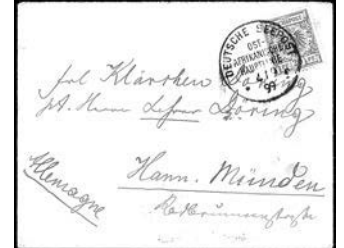 DEUTSCHE SEEPOST
OST-
AFRIKANISCHE
HAUPTLINIE
99
Frl Klärchen Döring
Lehrer Döring
Hann. Münden
Allemagne